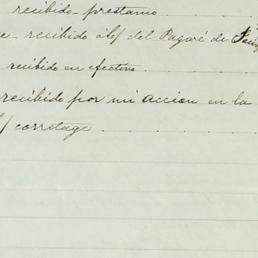 recibido prestamo
recibido a/c del Pagaré de
recibido en efectivo
recibido por mi accion en la
corretage